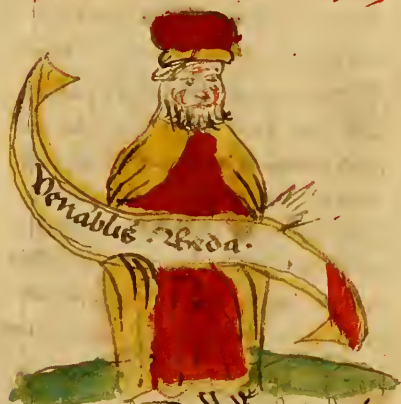 Venablis · Beda ·